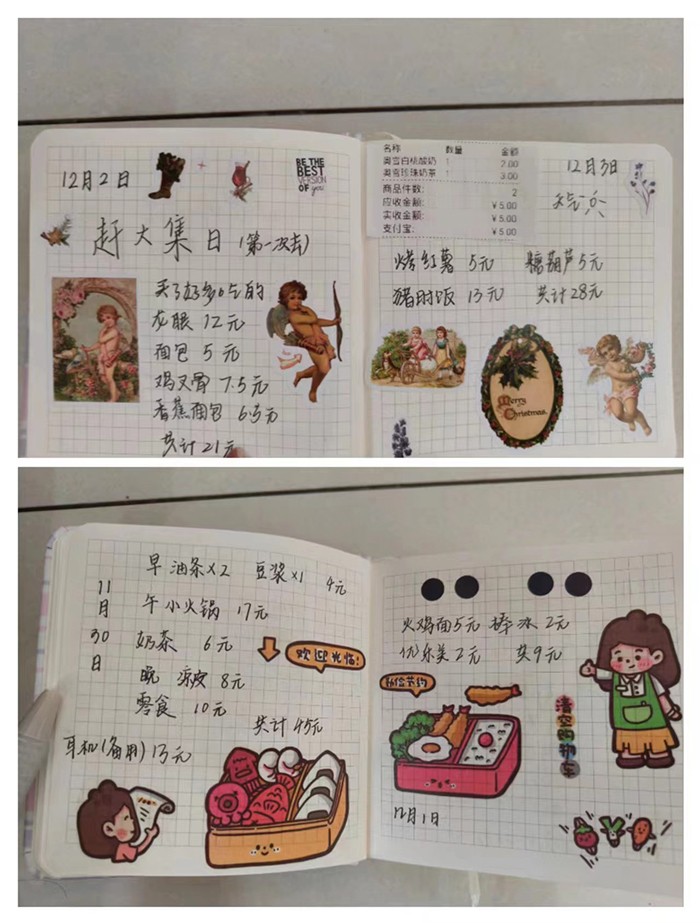 12月2日
BE THE
BEST
VERSION
OF you
赶大集日(第一次去)
买了好多吃的
龙眼 12元
面包 5元
鸡叉骨 7.5元
香蕉面包 6.5元
共计21元
名称 数量 金额
奥雪白桃酸奶 1 2.00
奥雪珍珠奶茶 1 3.00
商品件数: 2
应收金额: ¥5.00
实收金额: ¥5.00
支付宝: ¥5.00
12月3日
烤红薯 5元 糖葫芦5元
猪肘饭 13元 共计28元
Merry
Christmas.
早 油条×2 豆浆×1 4元
11月30日
午 小火锅 17元
奶茶 6元
欢迎光临!
晚 凉皮 8元
零食 10元
共计45元
耳机(备用)13元
火鸡面5元 棒冰2元
优乐美2元 共9元
勤俭节约
清空购物车
12月1日